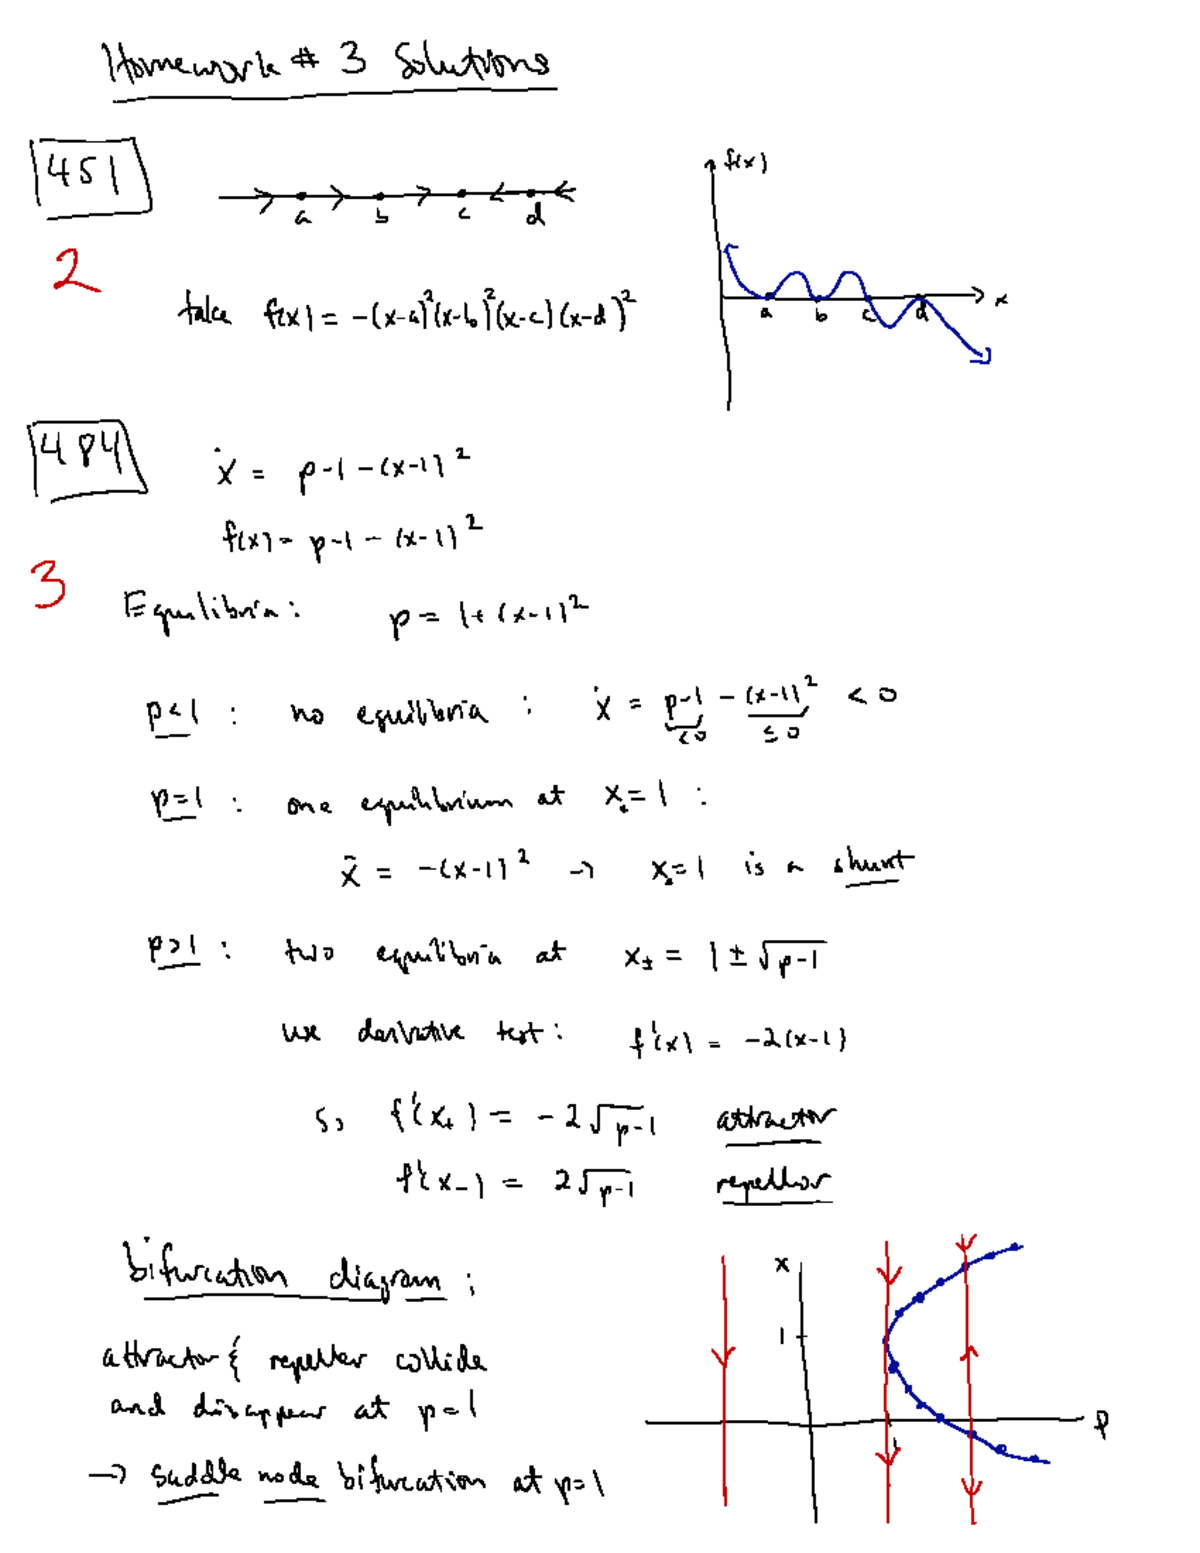 Homework # 3 Solutions
451
a b c d
f(x)
x
a b c d
2
take f(x) = -(x-a)²(x-b)²(x-c)(x-d)²
484
ẋ = p-1-(x-1)²
f(x) = p-1-(x-1)²
3
Equilibria: p = 1+(x-1)²
p<1 : no equilibria : ẋ = p-1 - (x-1)² < 0
<0 ≤0
p=1 : one equilibrium at x₀=1 :
ẋ = -(x-1)² → x₀=1 is a shunt
p>1 : two equilibria at x± = 1 ± √p-1
use derivative test: f'(x) = -2(x-1)
So f'(x₊) = -2√p-1 attractor
f'(x₋) = 2√p-1 repellor
bifurcation diagram :
x
1
p
1
attractor & repeller collide
and disappear at p=1
→ saddle node bifurcation at p=1